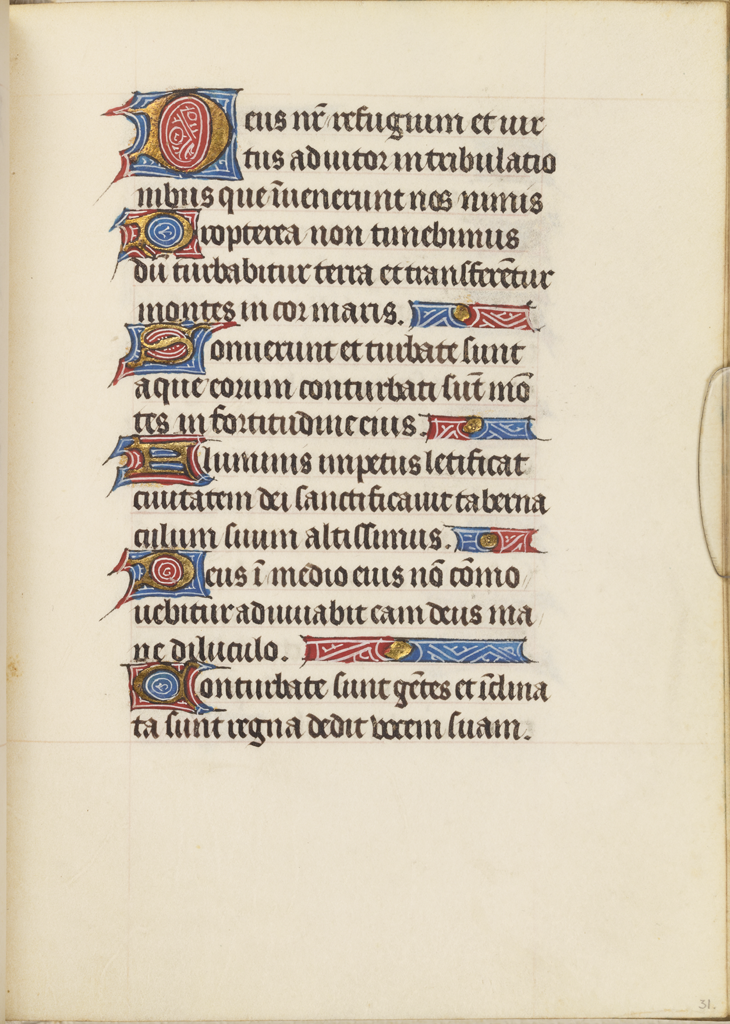 Deus nr̄ refugium et uir
tus adiutor in tribulatio
nibus que īuenerunt nos nimis
Propterea non timebimus
dū turbabitur terra et transferētur
montes in cor maris.
Sonuerunt et turbate sunt
aque eorum conturbati sūt mō
tes in fortitudine eius.
Fluminis impetus letificat
ciuitatem dei sanctificauit taberna
culum suum altissimus.
Deus ī medio eius nō cōmo
uebitur adiuuabit eam deus ma
ne diluculo.
Conturbate sunt gētes et īclina
ta sunt regna dedit vocem suam.
31.